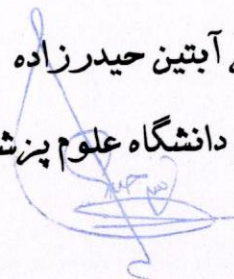 آبتین حیدرزاده
دانشگاه علوم پزش